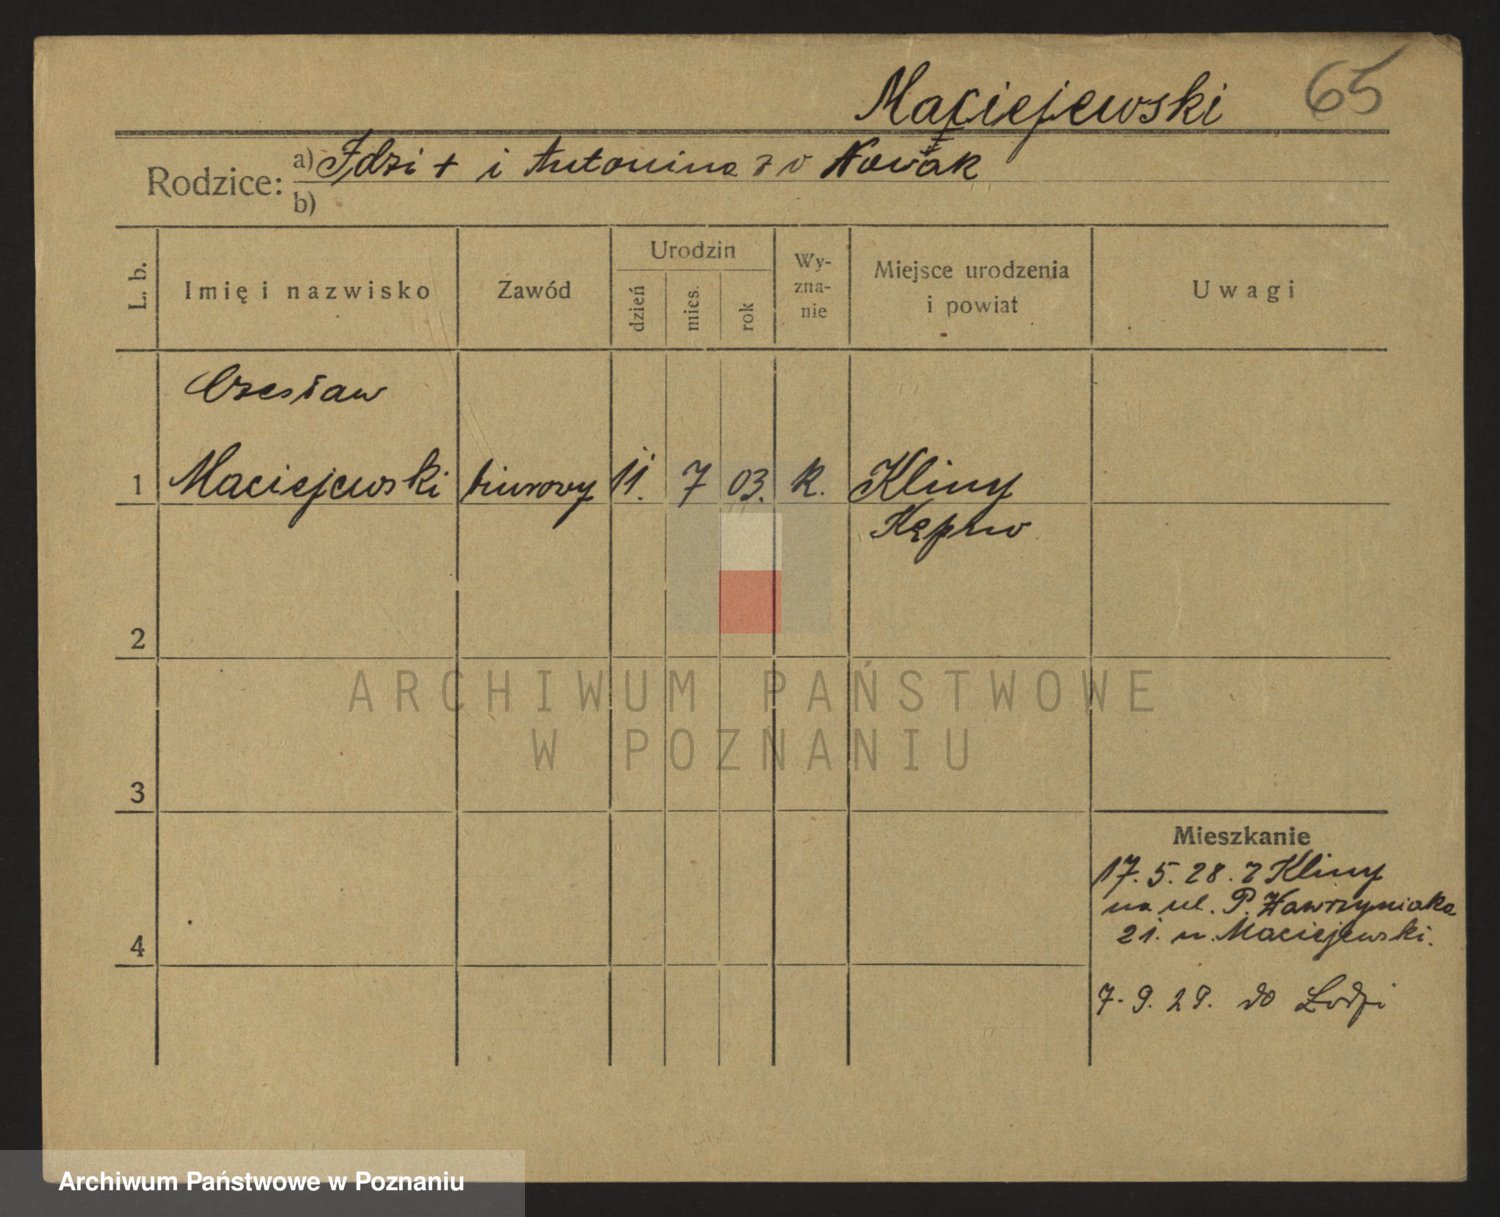 Maciejewski 65
Rodzice: a) Idzi + i Antonina z d Nowak
b)
L. b. Imię i nazwisko Zawód Urodzin dzień mies. rok Wyznanie Miejsce urodzenia i powiat Uwagi
Czesław
1 Maciejewski biurowy 11. 7 03. k. Kliny
Kępno
2
ARCHIWUM PAŃSTWOWE
W POZNANIU
3
Mieszkanie
17. 5. 28. z Kliny
na ul. P. Wawrzyniaka
21. u. Maciejewski.
4
7. 9. 29. do Łodzi
Archiwum Państwowe w Poznaniu